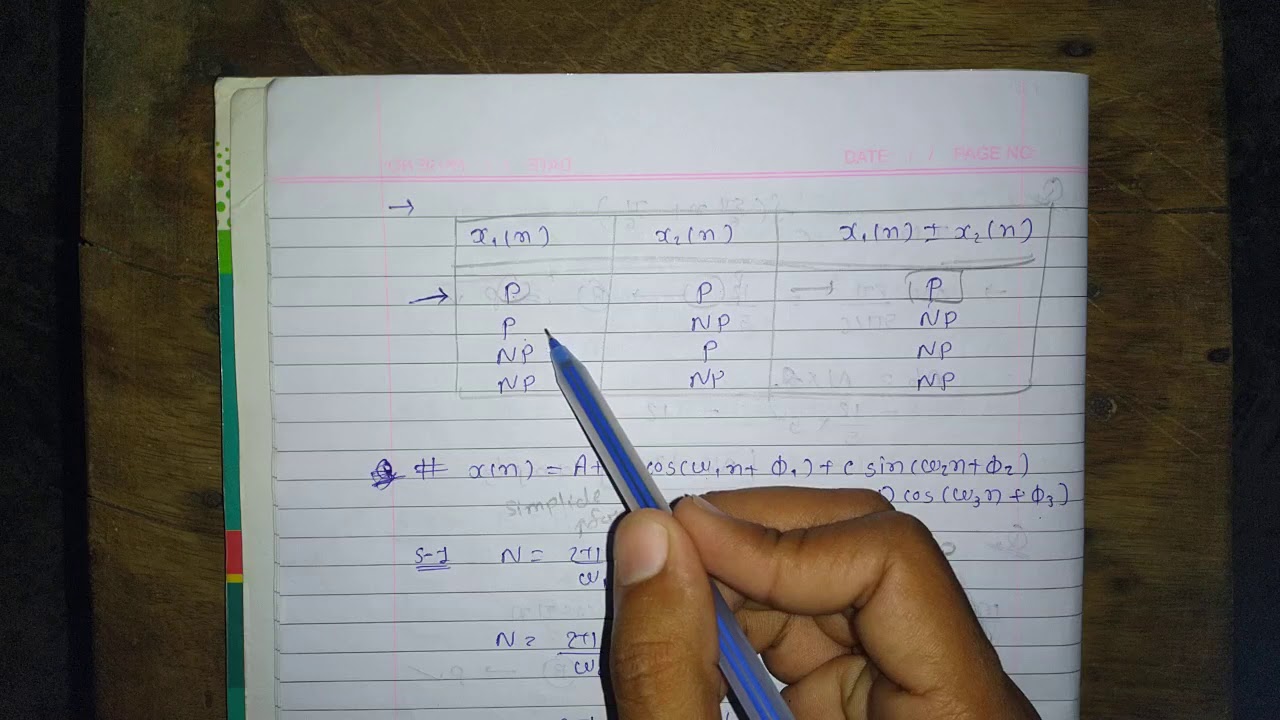 DATE / / PAGE NO:
→
x₁(n) x₂(n) x₁(n) ± x₂(n)
→ P P → P
P NP NP
NP P NP
NP NP NP
# x(n) = A+ cos(ω₁n+ φ₁)+ c sin(ω₂n+φ₂)
cos(ω₃n+φ₃)
S-1 N = 2π
ω
N = 2π
ω